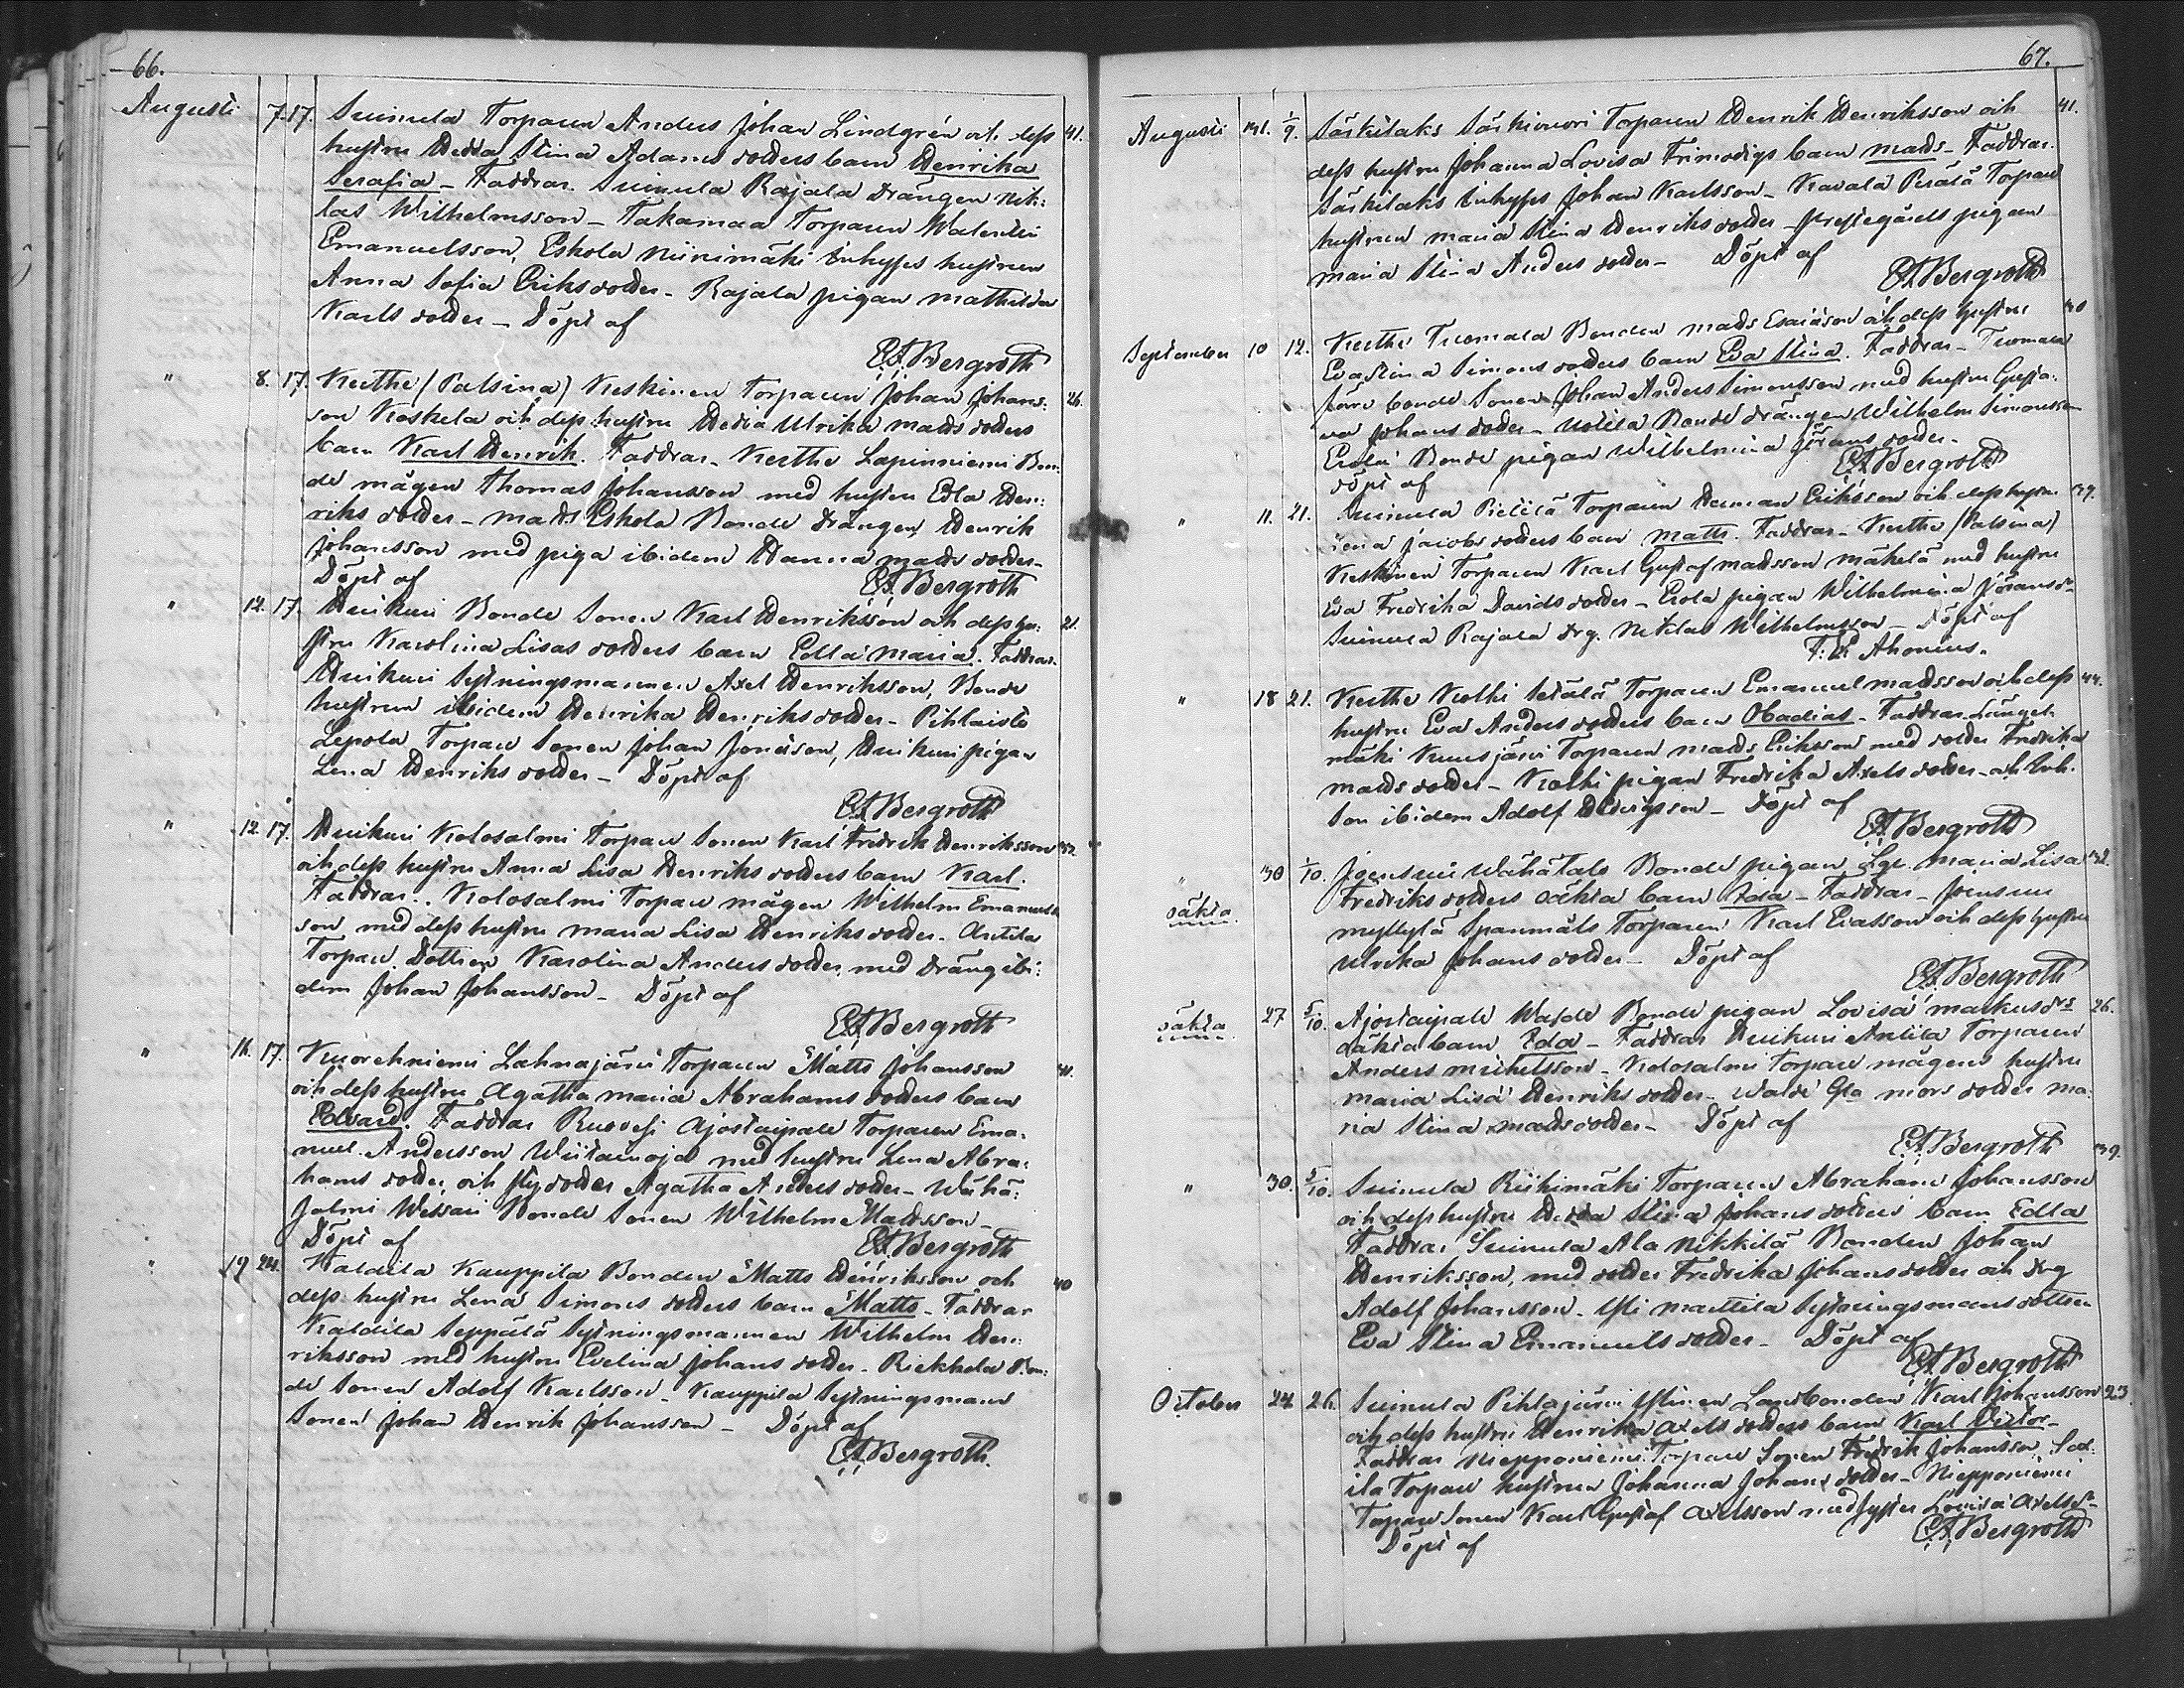 66.
Augusti 7. 17. Suinula Torparen Anders Johan Lindgrén och dess 41.
hustru Hedda Stina Adams dotters barn Henrika
Serafia - Faddrar. Suinula Rajala Drängen Nik:
las Wilhelmsson - Takamaa Torparen Walentin
Emanuelsson, Eskola Niinimäki Inhyses hustrun
Anna Sofia Eriksdotter - Rajala pigan Mathilda
Karls dotter - Döpt af
E. A. Bergroth
" 8. 17. Kuthe (Palsina) Keskinen Torparen Johan Johans: 26.
son Koskela och dess hustru Hedda Ulrika Matts dotters
barn Karl Henrik. Faddrar - Kuthe Lapinniemi Bon:
de mågen Thomas Johansson med hustru Edla Hen:
riks dotter - Matts Eskola Bonde Drängen Henrik
Johansson med piga ibidem Hanna Matts dotter -
Döpt af
E. A. Bergroth
" 12. 17. Unikuri Bonde Sonen Karl Henriksson och dess hu: 21.
stru Karolina Lisas dotters barn Edla Maria. Faddrar
Unikuri Sytningsmannen Axel Henriksson, Bonde
hustrun ibidem Henrika Henriks dotter - Pihlaisto
Lepola Torpare Sonen Johan Jonäson, Unikuri pigan
Lena Henriks dotter - Döpt af
E. A. Bergroth
" 12. 17. Unikuri Kolosalmi Torpare Sonen Karl Fredrik Henriksson
och dess hustru Anna Lisa Henriks dotters barn Karl.
Faddrar.. Kolosalmi Torpare mågen Wilhelm Emanuels
son, med dess hustru Maria Lisa Henriks dotter. Anttila
Torpare Dottren Karolina Anders dotter med dräng ibi:
dem Johan Johansson - Döpt af
E. A. Bergroth
" 16. 17. Kuorehniemi Lahnajärvi Torparen Matts Johansson
och dess hustru Agatha Maria Abrahams dotters barn
Edvard. Faddrar Ruovesi Ajostaipale Torparen Ema:
nuel Andersson Wiitainoja med hustru Lena Abra:
hams dotter och styfdotter Agatha Anders dotter - Wähä:
Jalmi Wessari Bonde Sonen Wilhelm Mattsson -
Döpt af
E. A. Bergroth
" 19 24. Kaldila Kauppila Bonden Matts Henriksson och 40
dess hustru Lena Simons dotters barn Matts - Faddrar
Kaldila Seppälä Sytningsmannen Wilhelm Hen:
riksson med hustru Evelina Johans dotter - Riekkela Bon:
de Sonen Adolf Karlsson - Kauppila Sytningsmans
Sonen Johan Henrik Johansson - Döpt af
E. A. Bergroth.
67.
Augusti 31. 1/9. Särkilaks Särkivuori Torparen Henrik Henriksson och 41.
dess hustru Johanna Lovisa Frimodigs barn Matts - Faddrar.
Särkilaks Inhyses Johan Karlsson - Kavala Perälä Torpare
hustrun Maria Stina Henriks dotter - Prestegårds pigan
Maria Stina Anders dotter - Döpt af
E. A. Bergroth
September 10 12. Kuthe Tuomala Bonden Matts Esaiäson och dess hustru 30
Eva Stina Simons dotters barn Eva Stina. Faddrar - Tuomala
Järe bonde Sonen Johan Anders Simonsson med hustru Gusta:
va Johans dotter - Uotila Bonde drängen Wilhelm Simonsson
Erola Bonde pigan Wilhelmina Jörans dotter -
döpt af
E. A. Bergroth
" 11. 21. Suinula Pietilä Torparen Herman Eriksson och dess hustru 39.
Lena Jacobs dotters barn Matts. Faddrar - Kuthe (Palsina)
Keskinen Torparen Karl Gustaf Mattsson Mäkelä med hustru
Eva Fredrika Davids dotter - Erola pigan Wilhelmina Jöransdr
Suinula Rajala drg. Niklas Wilhelmsson - Döpt af
F. E. Ahonius.
" 18 21. Kuthe Kolhi Ketälä Torparen Emanuel Mattsson och dess 44.
hustru Eva Anders dotters barn Obadias - Faddrar Länget
mäki Kuusjärvi Torparen Matts Eriksson med dotter Fredrika
Matts dotter - Kolhi pigan Fredrika Axels dotter - och Inh.
Son ibidem Adolf Hedvigsson - Döpt af
E. A. Bergroth
" 30 1/10. Joensuu Wähätalo Bonde pigan Lge. Maria Lisa 32.
oäkta
Fredriks dotters oäkta barn Ida - Faddrar - Joensuu
Myllylä Spanmåls Torparen Karl Evasson och dess hustru
Ulrika Johans dotter - Döpt af
E. A. Bergroth
oäkta 27 5/10. Ajostaipale Walde Bonde pigan Lovisa Markusdrs 26.
oäkta barn Ida - Faddrar Unikuri Antila Torparen
Anders Michelsson - Kolosalmi Torpare mågens hustru
Maria Lisa Henriks dotter - Walde Gla mors dotter Ma:
ria Stina Matts dotter - Döpt af
E. A. Bergroth
" 30. 5/10. Suinula Riihimäki Torparen Abraham Johansson 39.
och dess hustru Hedda Stina Johans dotters barn Edla
Faddrar Suinula Ala Nikkilä Bonden Johan
Henriksson, med dotter Fredrika Johans dotter och drg
Adolf Johansson - Ysti Marttila Sytningsmans dottren
Eva Stina Emanuels dotter - Döpt af
E. A. Bergroth
October 24 26. Suinula Pihlajärvi Ystinen Landbonden Karl Johansson 23
och dess hustru Henrika Axels dotters barn Karl Victor -
Faddrar Niepponiemi Torpare Sonen Fredrik Johansson, Sat:
ila Torpare hustrun Johanna Johans dotter - Niepponiemi
Torpare Sonen Karl Gustaf Axelsson med syster Lovisa Axelsdr
Döpt af
E. A. Bergroth